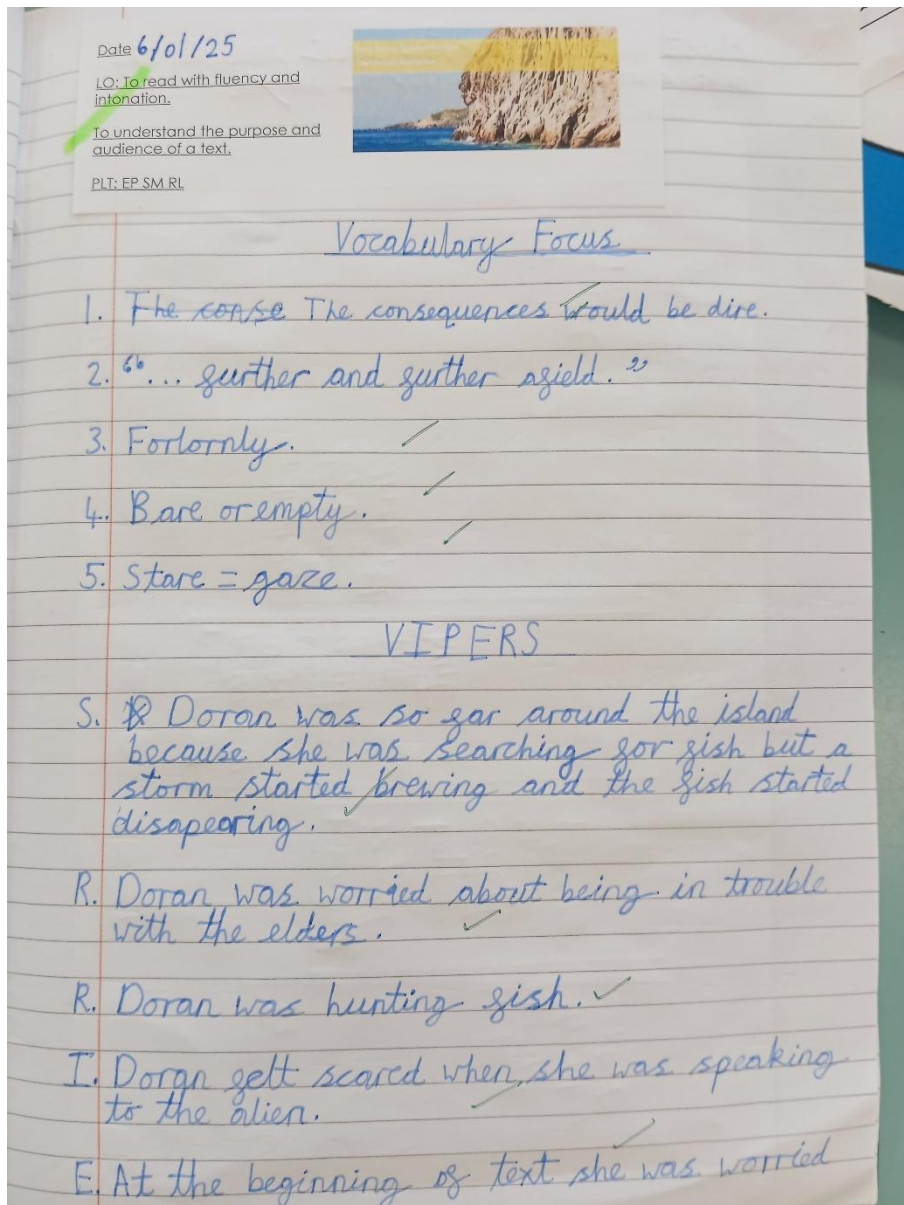 Date 6/01/25
LO: To read with fluency and
intonation.
To understand the purpose and
audience of a text.
PLT: EP SM RL
Vocabulary Focus
1. The conse The consequences would be dire.
2. "... further and further afield."
3. Forlornly.
4. Bare or empty.
5. Stare = gaze.
VIPERS
S. Doran was so far around the island
because she was searching for fish but a
storm started brewing and the fish started
disapearing.
R. Doran was worried about being in trouble
with the elders.
R. Doran was hunting fish.
I. Doran felt scared when she was speaking
to the alien.
E. At the beginning of text she was worried